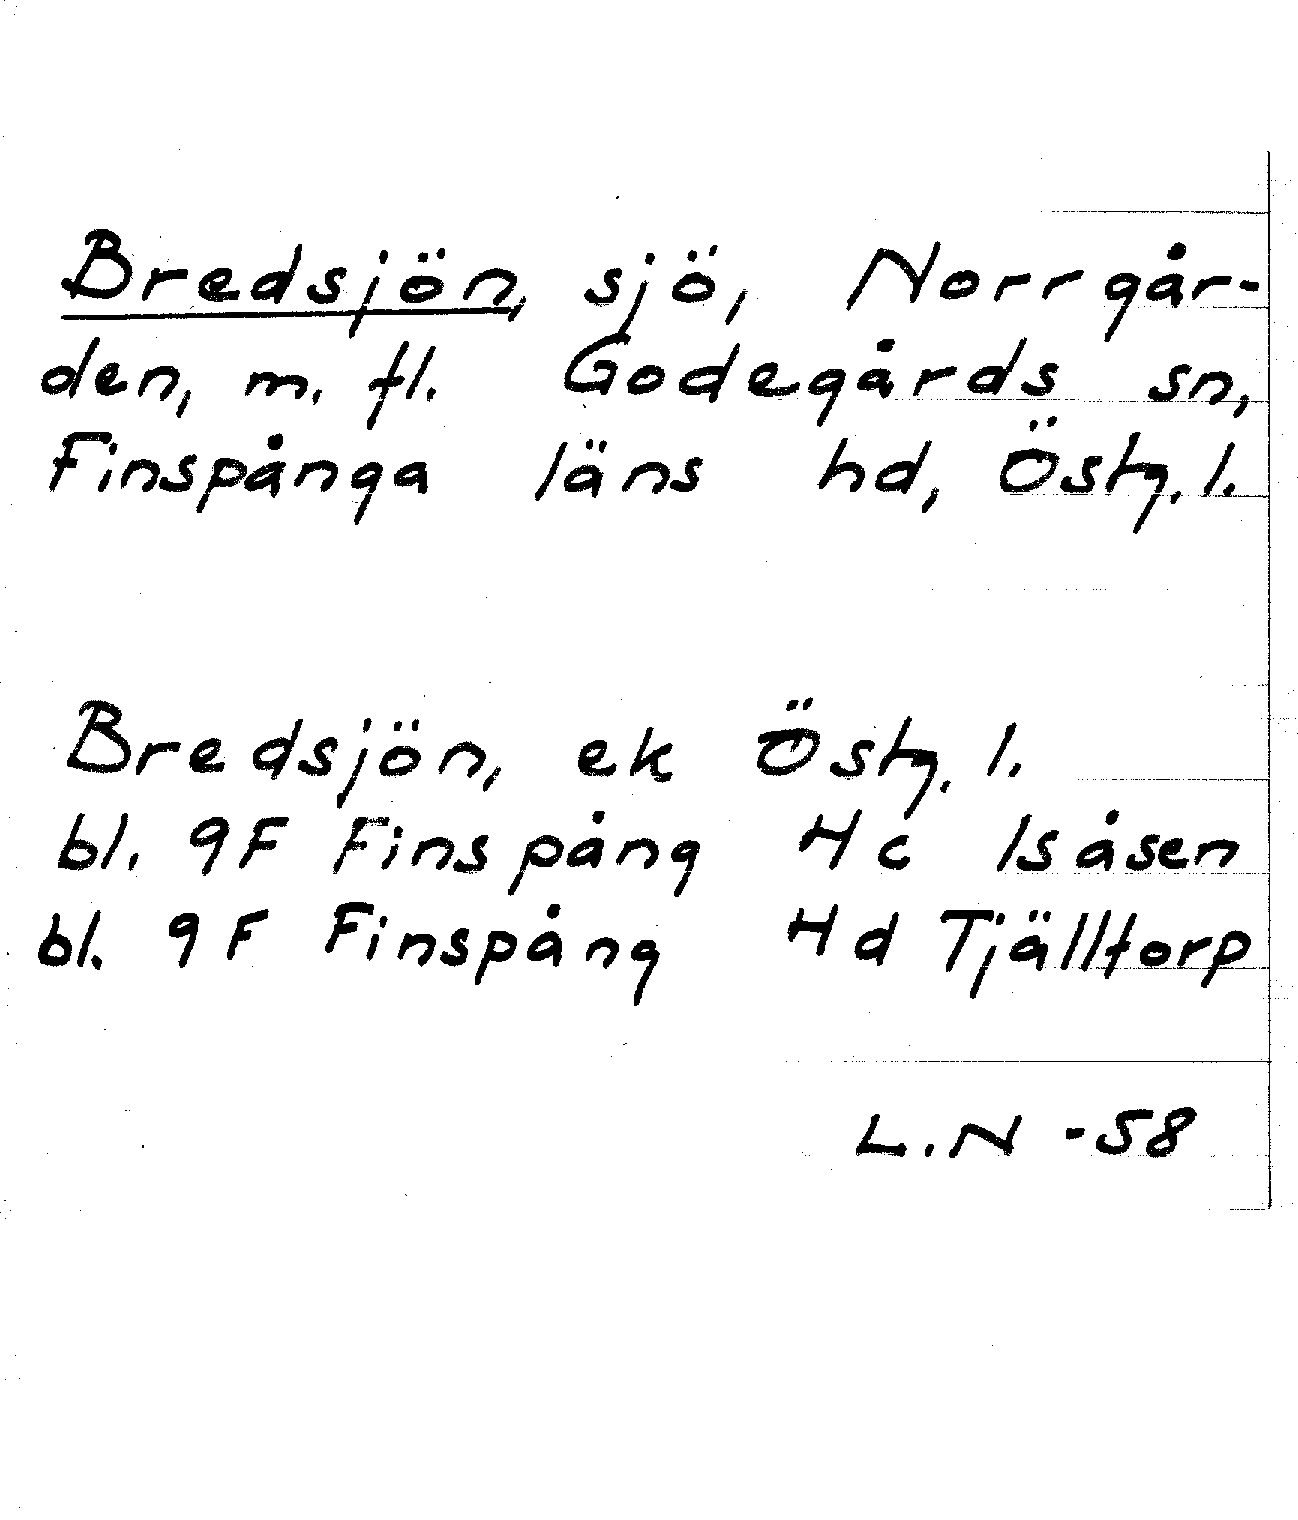 Bredsjön, sjö, Norrgår-
den, m. fl. Godegårds sn,
Finspånga läns hd, Östg. l.
Bredsjön, ek Östg. l.
bl. 9F Finspång 4c Isåsen
bl. 9F Finspång 4d Tjälltorp
L.N -58